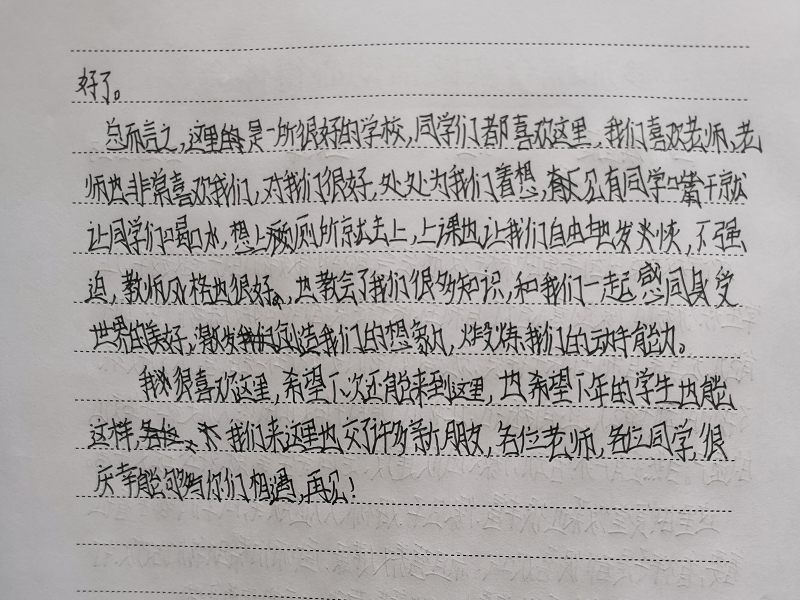 好了。
总而言之,这里的是一所很好的学校,同学们都喜欢这里,我们喜欢老师,老
师也非常喜欢我们,对我们很好,处处为我们着想,有同学嘴干就
让同学们喝水,想上厕所就去上,上课也让我们自由地发挥,不强
迫,教师风格也很好,也教会了我们很多知识,和我们一起感同身受
世界的美好,激发创造我们的想象力,火锻炼我们的动手能力。
我很喜欢这里,希望下次还能来到这里,也希望下年的学生也能
这样,我们来这里也交了许多新朋友,各位老师,各位同学,很
庆幸能够与你们相遇,再见!